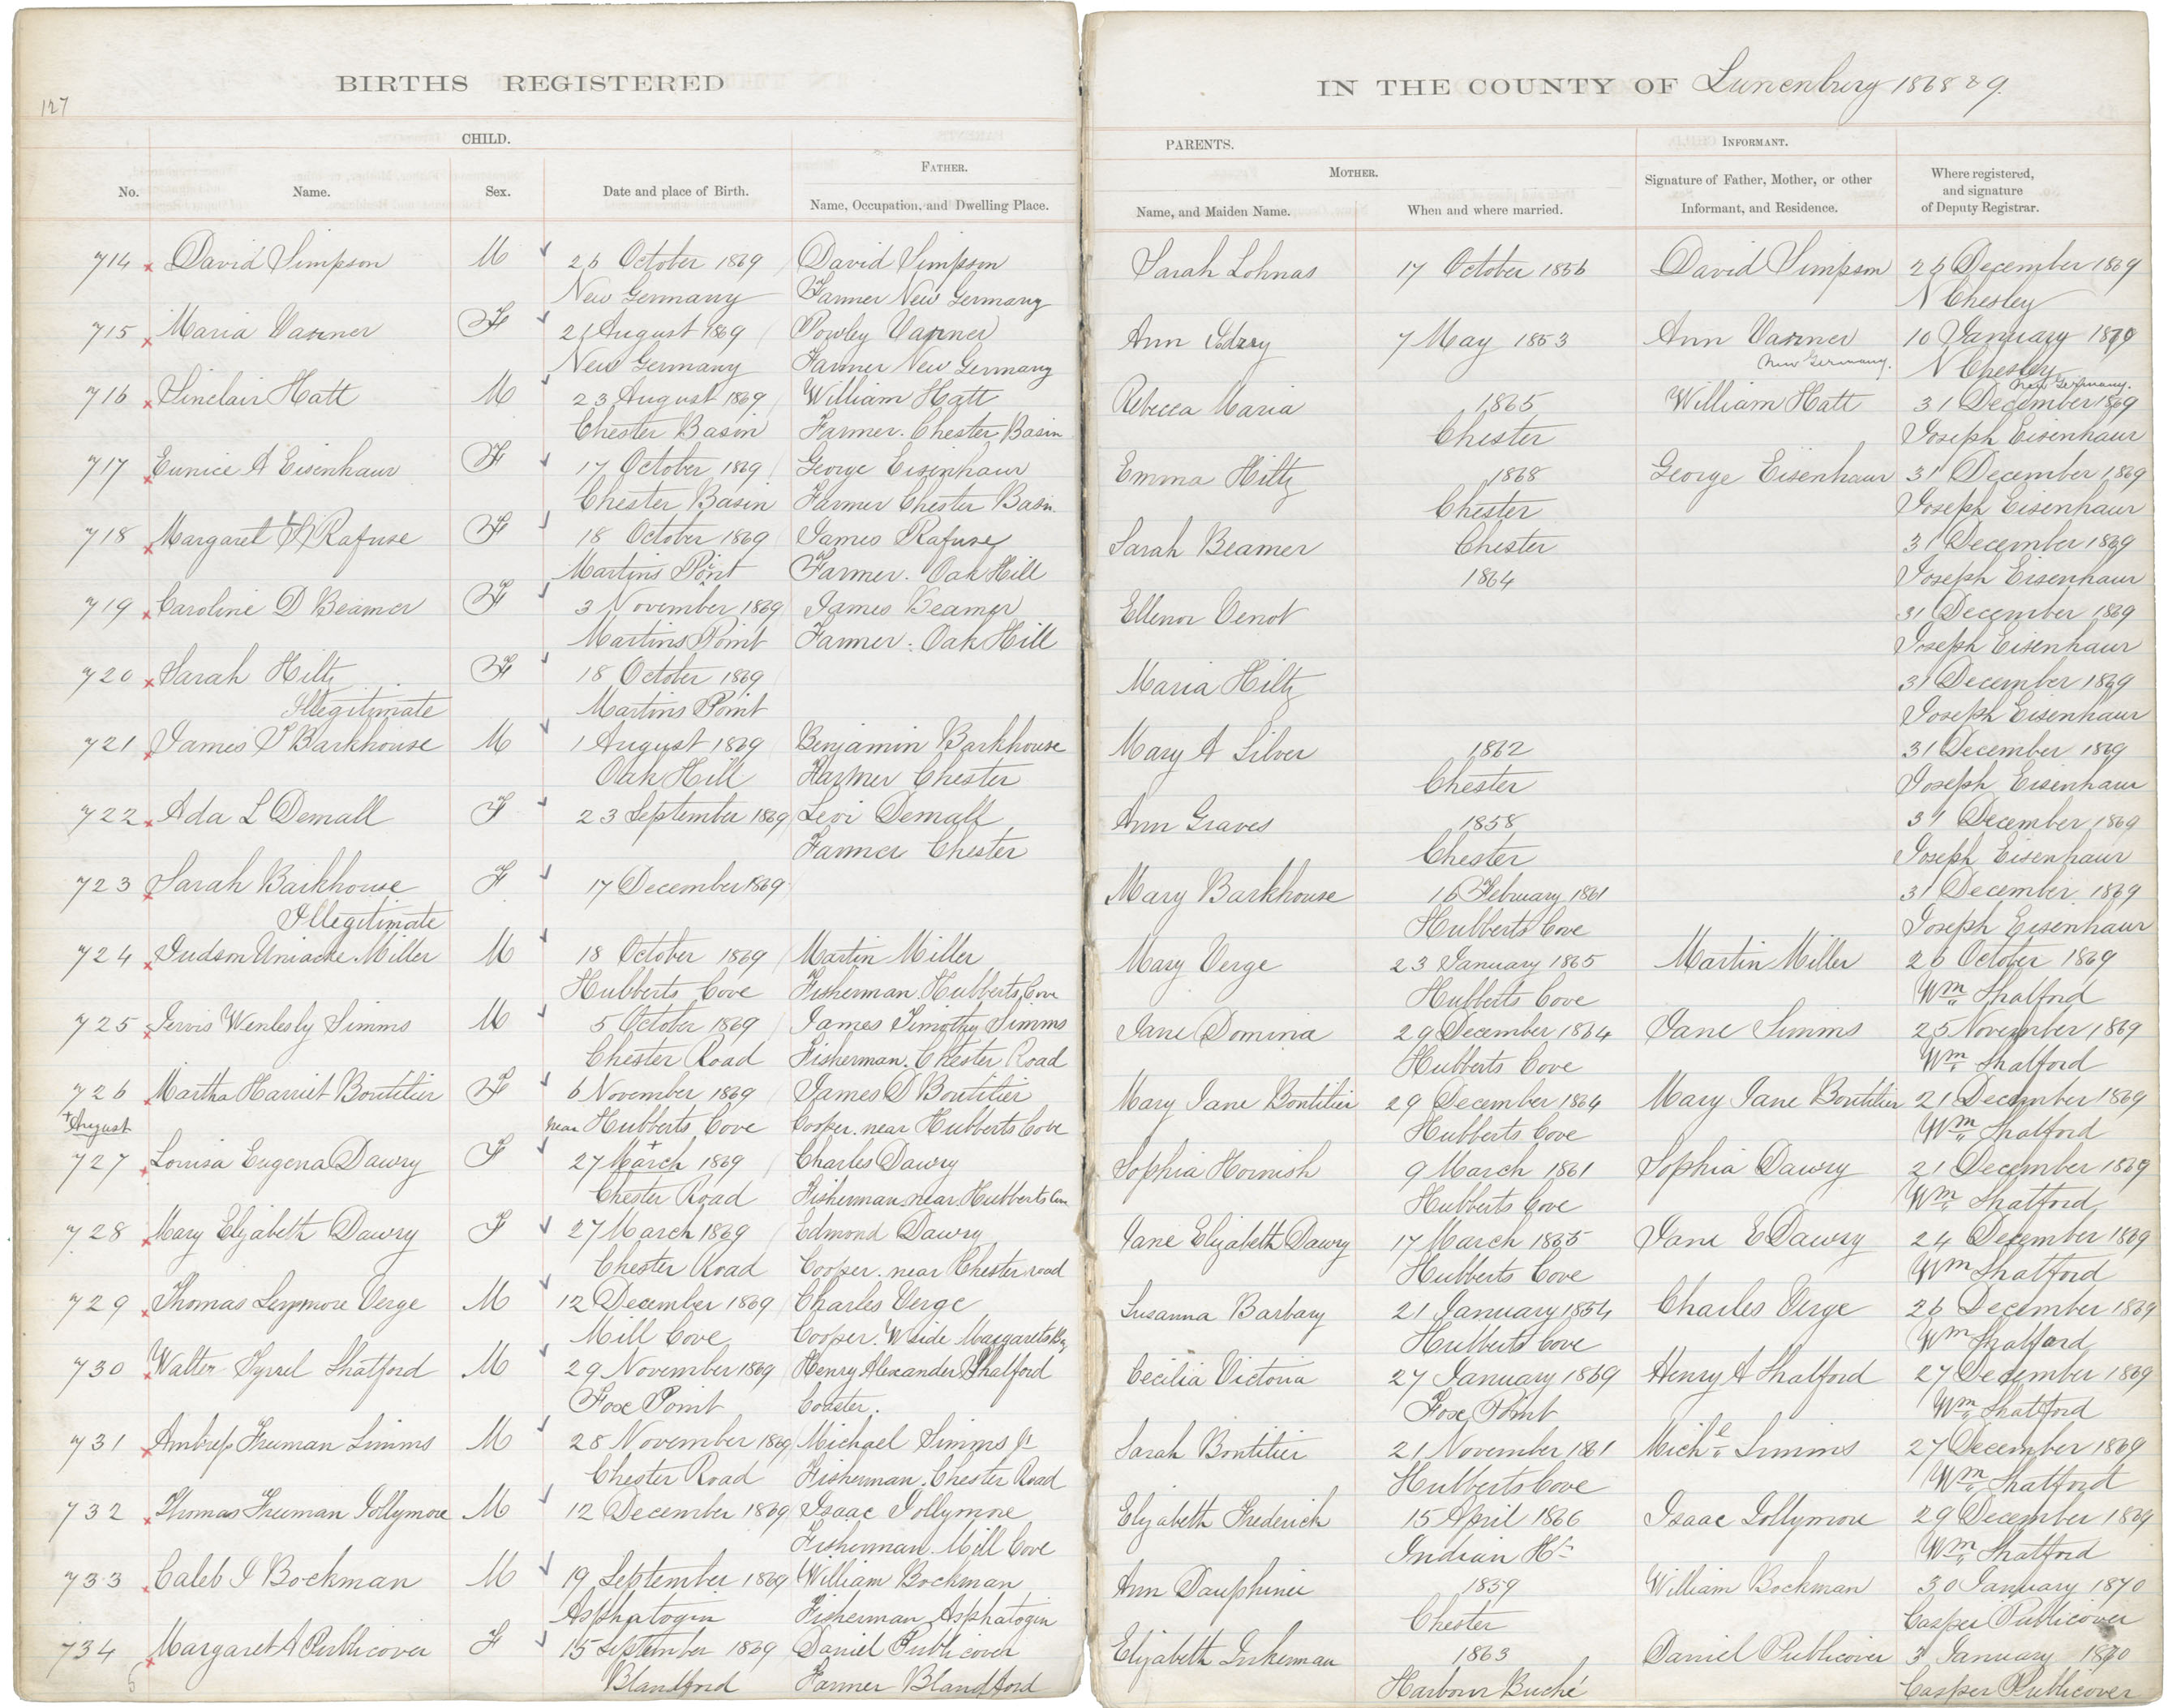 BIRTHS REGISTERED
IN THE COUNTY OF Lunenburg 1868 & 9.
127
CHILD.
PARENTS.
INFORMANT.
FATHER.
MOTHER.
No.
Name.
Sex.
Date and place of Birth.
Name, Occupation, and Dwelling Place.
Name, and Maiden Name.
When and where married.
Signature of Father, Mother, or other
Informant, and Residence.
Where registered,
and signature
of Deputy Registrar.
714 David Simpson M 26 October 1869 David Simpson Sarah Lohnas 17 October 1856 David Simpson 26 December 1869
New Germany Farmer New Germany N Chesley
715 Maria Varner F August 1869 Varner Ann 7 May 1853 Ann Varner 10 January 1870
New Germany Farmer New Germany New Germany. N Chesley
New Germany.
716 Sinclair Hatt M 23 August 1869 William Hatt Rebecca Maria 1865 William Hatt 31 December 1869
Chester Basin Farmer. Chester Basin Chester Joseph Eisenhaur
717 Eunice A Eisenhaur F 17 October 1869 George Eisenhaur Emma Hiltz 1868 George Eisenhaur 31 December 1869
Chester Basin Farmer Chester Basin Chester Joseph Eisenhaur
718 Margaret Rafuse F 18 October 1869 James Rafuse Sarah Beamer Chester 31 December 1869
Martins Point Farmer. Oak Hill 1864 Joseph Eisenhaur
719 Caroline D Beamer F 3 November 1869 James Beamer Ellenor Venot 31 December 1869
Martins Point Farmer. Oak Hill Joseph Eisenhaur
720 Sarah Hiltz F 18 October 1869 Maria Hiltz 31 December 1869
Illegitimate Martins Point Joseph Eisenhaur
721 James Barkhouse M 1 August 1869 Benjamin Barkhouse Mary A Silver 1862 31 December 1869
Oak Hill Farmer Chester Chester Joseph Eisenhaur
722 Ada L Demall F 23 September 1869 Levi Demall Ann Graves 1858 31 December 1869
Farmer Chester Chester Joseph Eisenhaur
723 Sarah Barkhouse F 17 December 1869 Mary Barkhouse 16 February 1861 31 December 1869
Illegitimate Hubberts Cove Joseph Eisenhaur
724 Judson Uniacke Miller M 18 October 1869 Martin Miller Mary Verge 23 January 1865 Martin Miller 26 October 1869
Hubberts Cove Fisherman Hubberts Cove Hubberts Cove Wm Shatford
725 Jervis Wenlesly Simms M 5 October 1869 James Timothy Simms Jane Domina 29 December 1864 Jane Simms 25 November 1869
Chester Road Fisherman. Chester Road Hubberts Cove Wm Shatford
726 Martha Harriet Boutilier F 6 November 1869 James D Boutilier Mary Jane Boutilier 29 December 1864 Mary Jane Boutilier 21 December 1869
+ August near Hubberts Cove Cooper. near Hubberts Cove Hubberts Cove Wm Shatford
727 Louisa Eugena Dawry F 27 + March 1869 Charles Dawry Sophia Hornish 9 March 1861 Sophia Dawry 21 December 1869
Chester Road Fisherman near Hubberts Cove Hubberts Cove Wm Shatford
728 Mary Elizabeth Dawry F 27 March 1869 Edmond Dawry Jane Elizabeth Dawry 17 March 1865 Jane E Dawry 24 December 1869
Chester Road Cooper. near Chester road Hubberts Cove Wm Shatford
729 Thomas Verge M 12 December 1869 Charles Verge Susanna Barbary 21 January 1854 Charles Verge 26 December 1869
Mill Cove Cooper. W side Margarets Bay Hubberts Cove Wm Shatford
730 Walter Tyrrel Shatford M 29 November 1869 Henry Alexander Shatford Cecilia Victoria 27 January 1869 Henry A Shatford 27 December 1869
Fox Point Coaster. Fox Point Wm Shatford
731 Ambrose Freeman Simms M 28 November 1869 Michael Simms Jr Sarah Boutilier 21 November 1861 Michl Simms 27 December 1869
Chester Road Fisherman. Chester Road Hubberts Cove Wm Shatford
732 Thomas Freeman Jollymore M 12 December 1869 Isaac Jollymore Elizabeth Frederick 15 April 1866 Isaac Jollymore 29 December 1869
Fisherman. Mill Cove Indian Hr Wm Shatford
733 Caleb J Bockman M 19 September 1869 William Bockman Ann Dauphinie 1859 William Bockman 30 January 1870
Asphatogin Fisherman Asphatogin Chester Casper Publicover
734 Margaret A Publicover F 15 September 1869 Daniel Publicover Elizabeth Inkerman 1863 Daniel Publicover 3 January 1870
Blandford Farmer Blandford Harbour Buché Casper Publicover